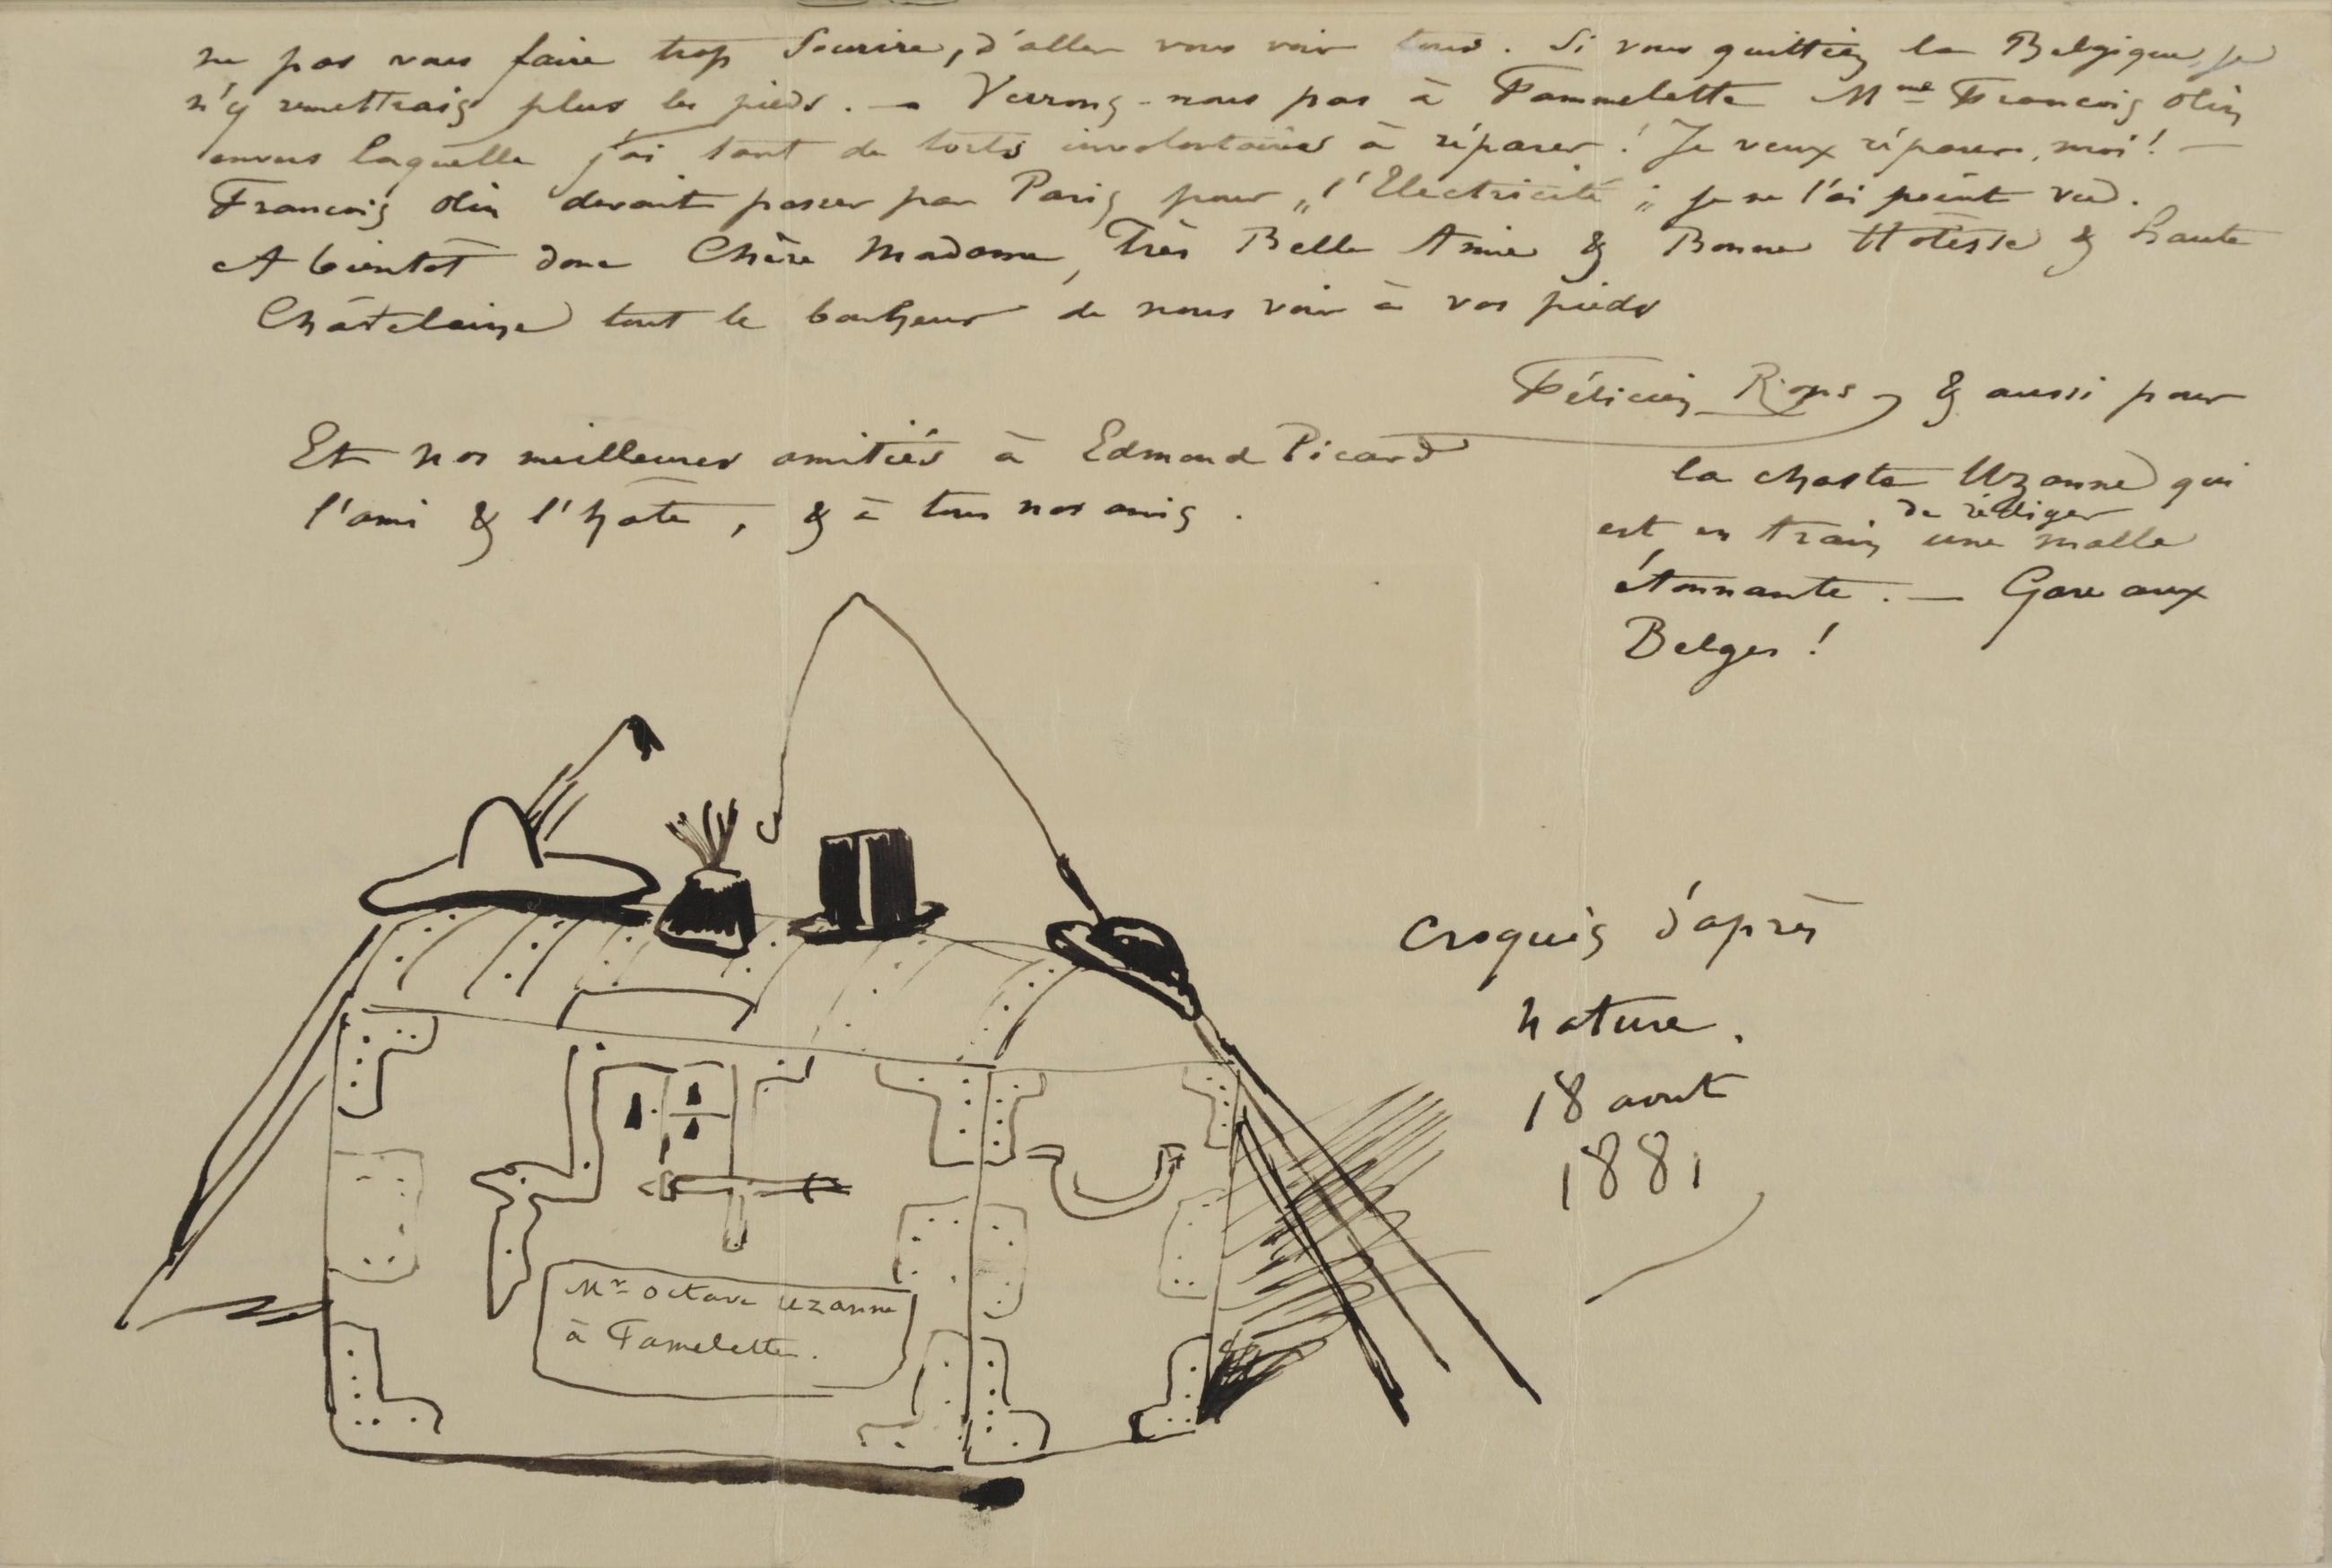 ne pas vous faire trop Sourire, d'aller vous voir tous. Si vous quittiez la Belgique, je
n'y remettrais plus les pieds. — Verrons-nous pas à Fammelette Mme François Olin
envers laquelle j'ai tant de torts involontaires à réparer! Je veux réparer, moi! —
François Olin devait passer par Paris pour „l'Electricité„; je ne l'ai point vu.
A bientôt donc Chère Madame, Très Belle Amie & Bonne Hôtesse & haute
Châtelaine tout le bonheur de nous voir à vos pieds
Félicien Rops, & aussi pour
la chaste Uzanne qui
est en train de rédiger une malle
étonnante. — Gare aux
Belges!
Et nos meilleures amitiés à Edmond Picard
l'ami & l'hôte, & à tous nos amis.
Croquis d'après
nature.
18 aout
1881
Mr Octave Uzanne
à Famelette.